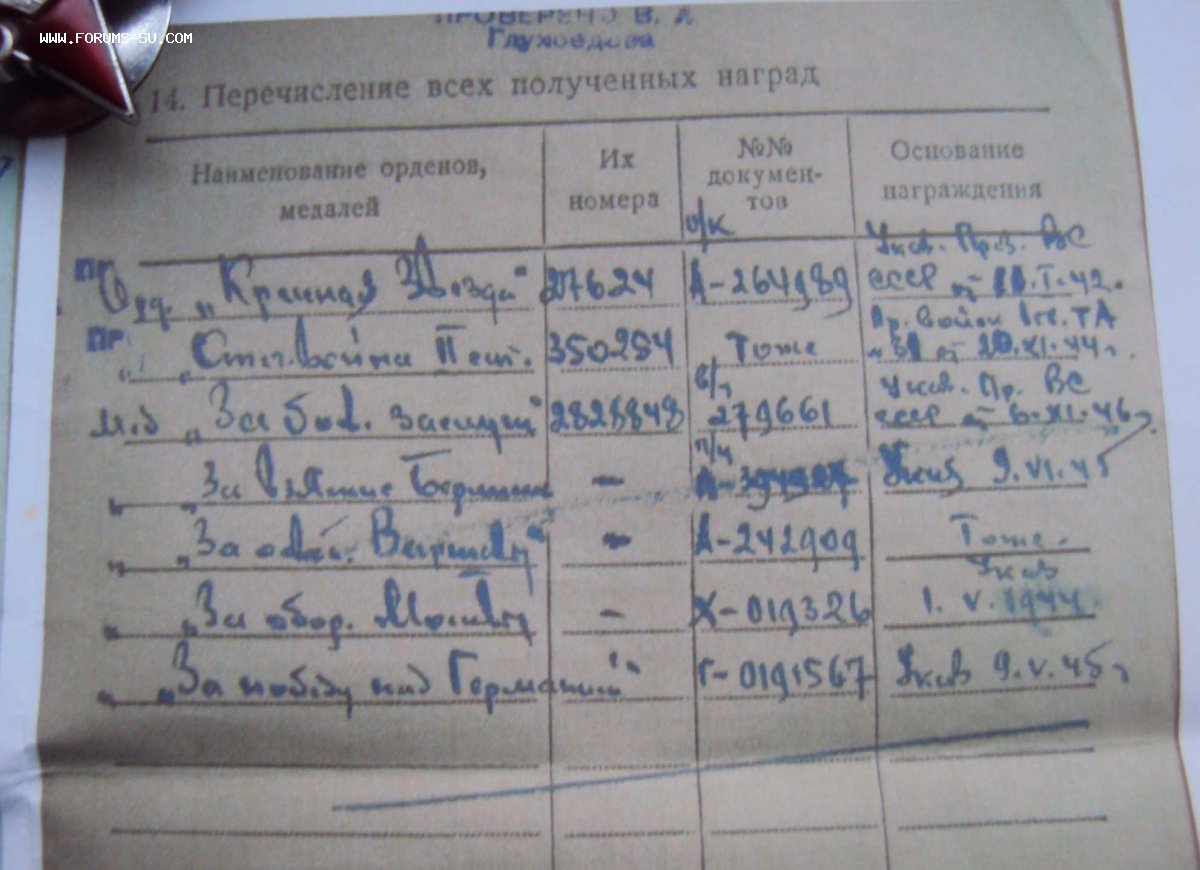 ПРОВЕРЕНО В. А
Глуховдова
WWW.FORUMS-SU.COM
14. Перечисление всех полученных наград
Наименование орденов, медалей
Их номера
№№ докумен-тов
Основание награждения
о/к
Указ. През. ВС
пр. Орд. „Красная Звезда" 27624 А-264989 СССР от 11.I.42.
Пр. войск 1гв. ТА
ПР. " „Отеч. война II ст. 350254 Тоже № 51 от 20.XI.44г.
в/л Указ. Пр. ВС
м.д „За боев. заслуги" 2828848 279661 СССР от 6.XI.46г.
п/ч
" „За взятие Берлина — Указ 9.VI.45
" „За освоб. Варшавы" - А-242909 Тоже.
Указ
" „За обор. Москвы - Х-019326 1.V.1944.
" „За победу над Германией" Г-0191567 Указ 9.V.45г